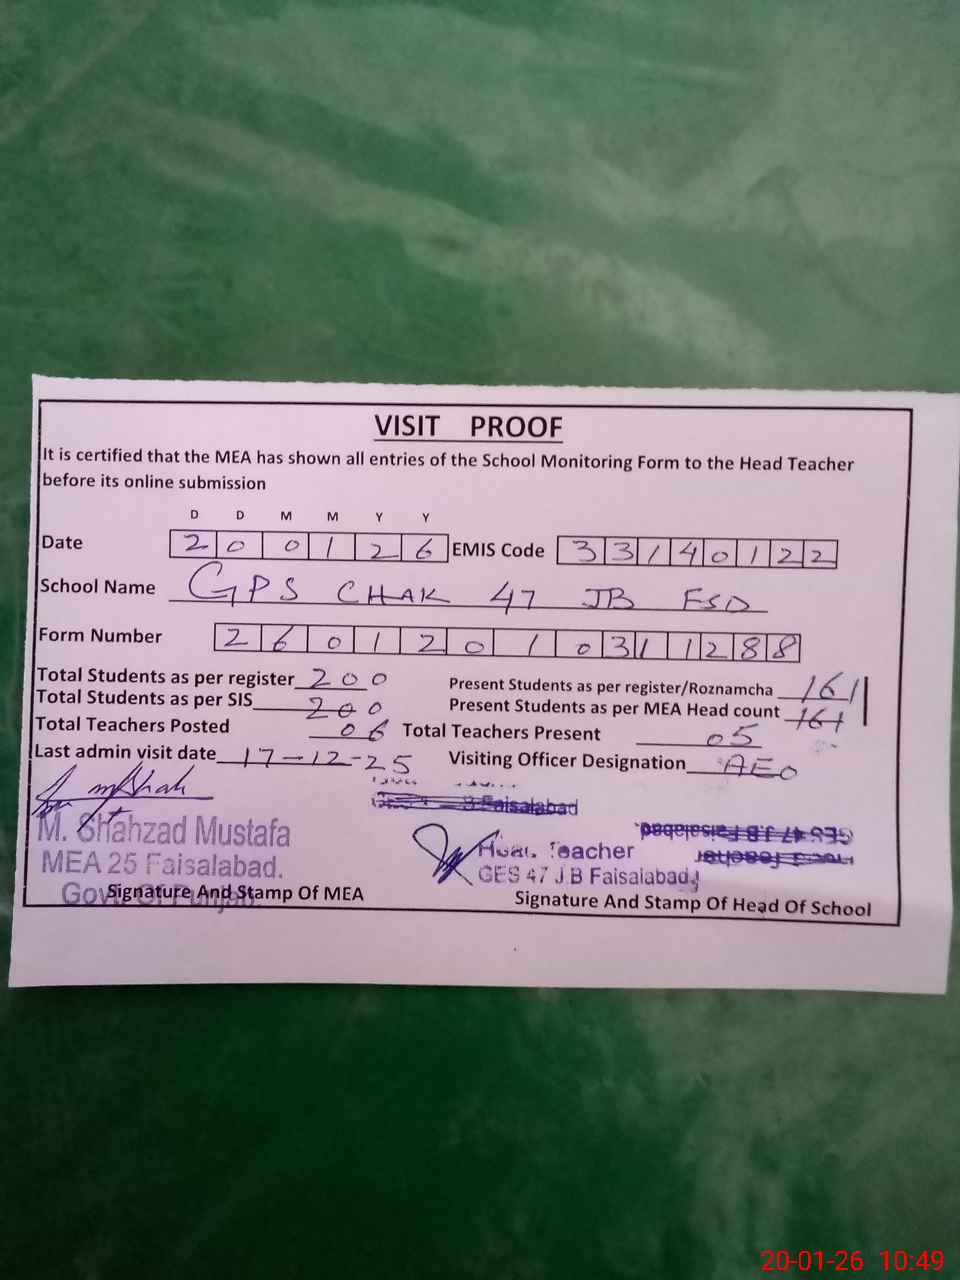 VISIT PROOF
It is certified that the MEA has shown all entries of the School Monitoring Form to the Head Teacher
before its online submission
D D M M Y Y
Date 2 0 0 1 2 6 EMIS Code 3 3 1 4 0 1 2 2
School Name GPS CHAK 47 JB FSD
Form Number 2 6 0 1 2 0 1 0 3 1 1 2 8 8
Total Students as per register 200 Present Students as per register/Roznamcha 161
Total Students as per SIS 200 Present Students as per MEA Head count 161
Total Teachers Posted 06 Total Teachers Present 05
Last admin visit date 17-12-25 Visiting Officer Designation AEO
Faisalabad
GES 47 J.B Faisalabad.
Head Teacher
M. Shahzad Mustafa
MEA 25 Faisalabad.
Govt. Of Punjab.
Signature And Stamp Of MEA
Head Teacher
GES 47 J.B Faisalabad.
Signature And Stamp Of Head Of School
20-01-26 10:49